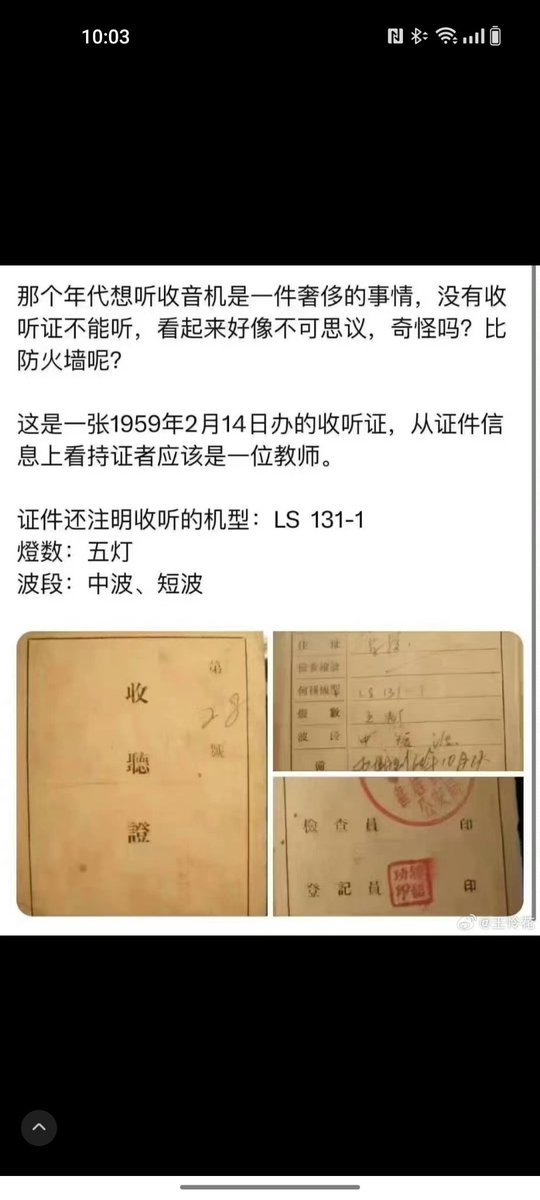 10:03
那个年代想听收音机是一件奢侈的事情，没有收
听证不能听，看起来好像不可思议，奇怪吗？比
防火墙呢？
这是一张1959年2月14日办的收听证，从证件信
息上看持证者应该是一位教师。
证件还注明收听的机型：LS 131-1
燈数：五灯
波段：中波、短波
第
28
號
收
聽
證
住址
何種機型 LS 131-1
燈數 五灯
波段 中 短 波
備
檢查員 印
登記員 印